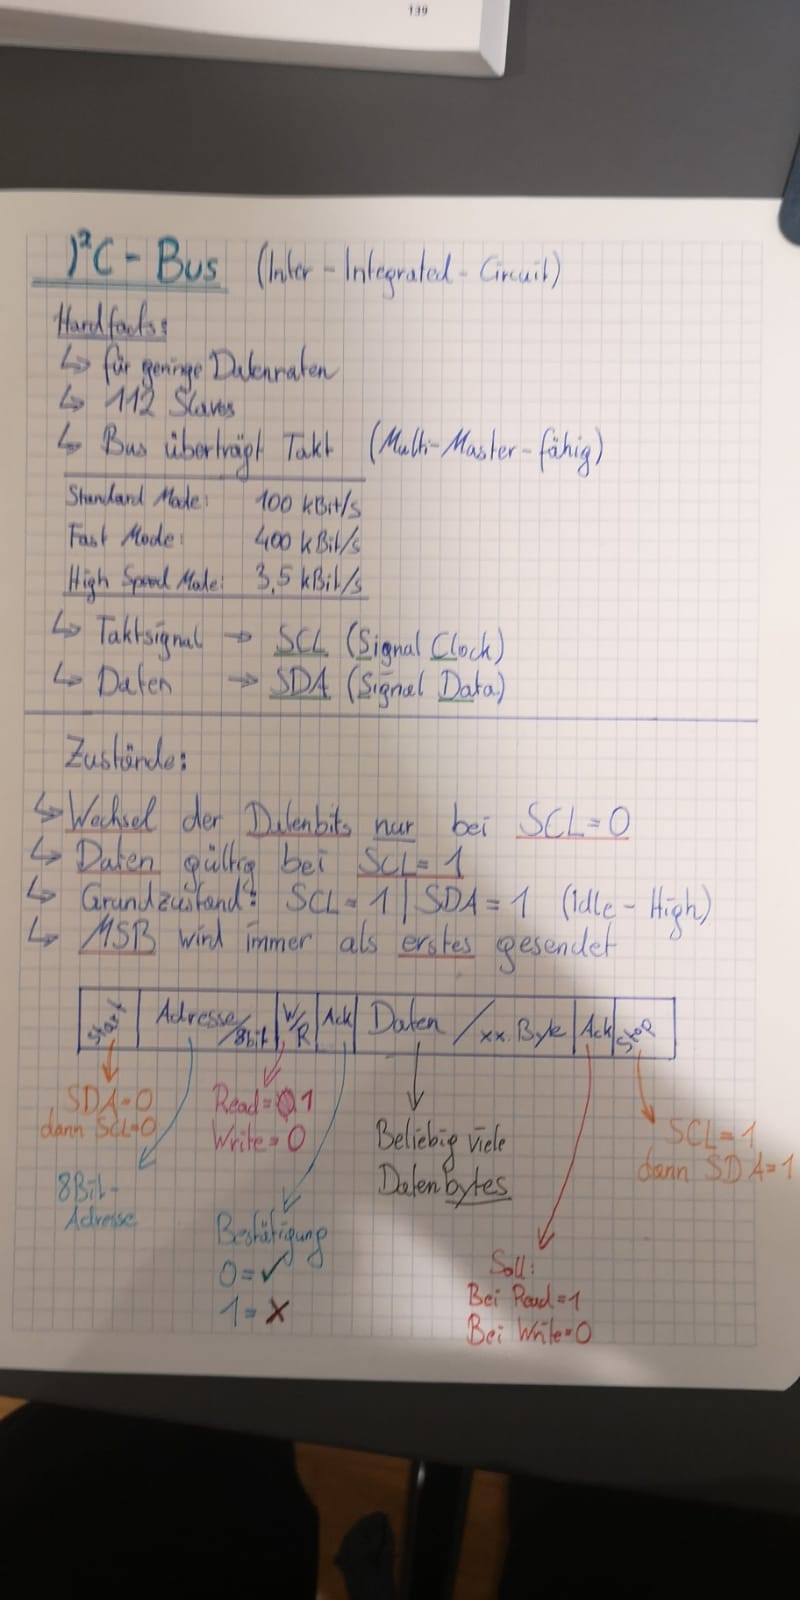 139
I²C - Bus (Inter - Integrated - Circuit)
Hardfacts:
↳ für geringe Datenraten
↳ 112 Slaves
↳ Bus überträgt Takt (Multi-Master-fähig)
Standard Mode: 100 kBit/s
Fast Mode: 400 kBit/s
High Speed Mode: 3,5 kBit/s
↳ Taktsignal → SCL (Signal Clock)
↳ Daten → SDA (Signal Data)
Zustände:
↳ Wechsel der Datenbits nur bei SCL=0
↳ Daten gültig bei SCL=1
↳ Grundzustand: SCL=1 | SDA=1 (idle - High)
↳ MSB wird immer als erstes gesendet
Start | Adresse/8bit | W/R | Ack | Daten /xx. Byte | Ack | Stop
SDA=0
dann SCL=0
8Bit-
Adresse
Read=1
Write=0
Bestätigung
0=✓
1=X
Beliebig viele
Datenbytes
Soll:
Bei Read=1
Bei Write=0
SCL=1
dann SDA=1